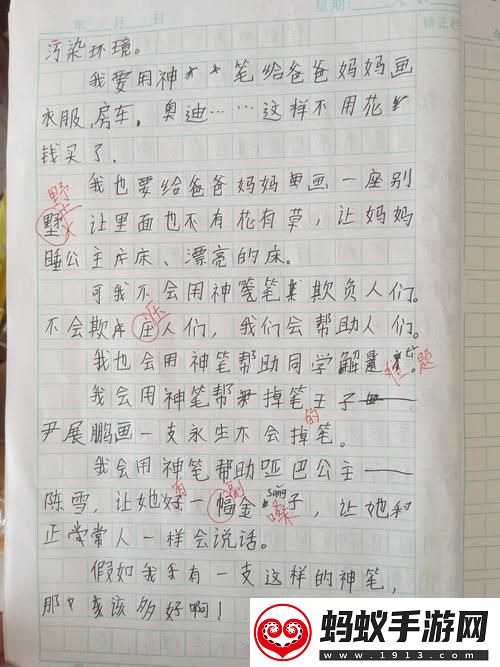 年 月 日 星期:
修正栏
污染环境。
我要用神笔给爸爸妈妈画
衣服、房车,奥迪……这样不用花
钱买了、
野
我也要给爸爸妈妈画一座别
墅,让里面也不有花有草,让妈妈
睡公主床、漂亮的床。
可我不会用神笔欺负人们。
压
不会欺庄人们,我们会帮助人们。
我也会用神笔帮助同学解
难题
我会用神笔帮掉笔王子——
的
尹展鹏画一支永生不会掉笔。
我会用神笔帮助哑巴公主——
有 副 sǎng
陈雪,让她好一幅金子,让她和
嗓
正常人一样会说话。
假如我有一支这样的神笔,
那该多好啊!
蚂蚁手游网
www.1913.com